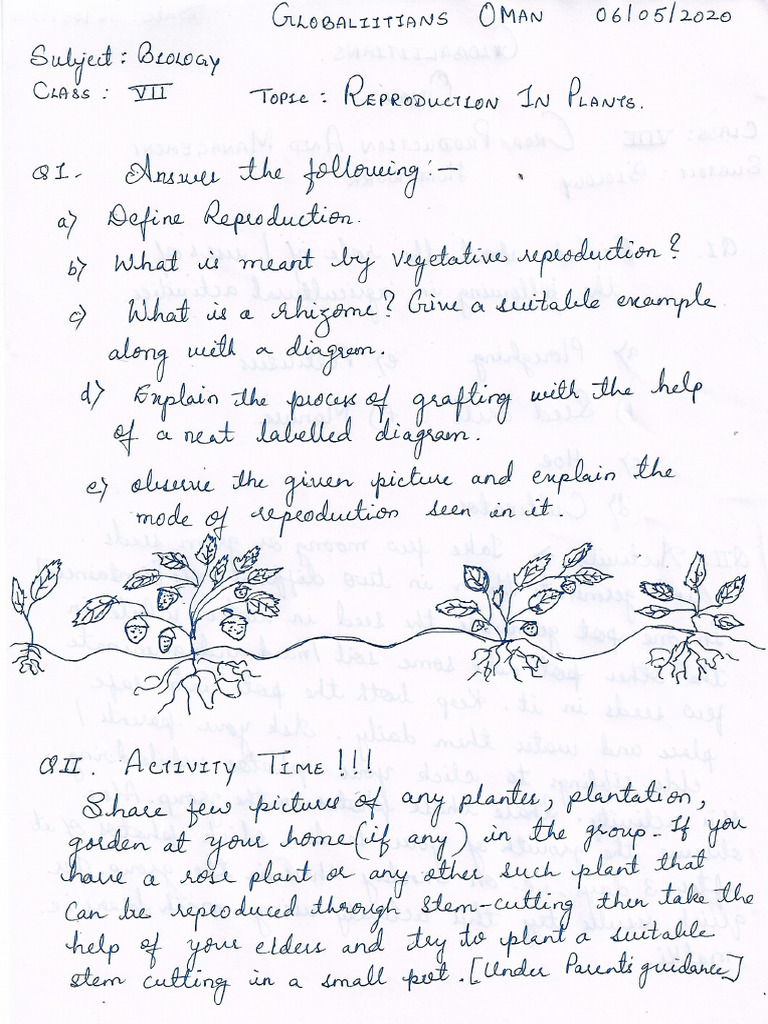 GLOBALIITIANS OMAN 06/05/2020
Subject: BIOLOGY
CLASS: VII TOPIC: REPRODUCTION IN PLANTS.
QI. Answer the following:-
a) Define Reproduction.
b) What is meant by vegetative reproduction?
c) What is a rhizome? Give a suitable example
along with a diagram.
d) Explain the process of grafting with the help
of a neat labelled diagram.
e) observe the given picture and explain the
mode of reproduction seen in it.
QII. ACTIVITY TIME!!!
Share few pictures of any plantes, plantation,
gorden at your home (if any) in the group. If you
have a rose plant or any other such plant that
can be reproduced through stem-cutting then take the
help of your elders and try to plant a suitable
stem cutting in a small pot. [Under Parents guidance]